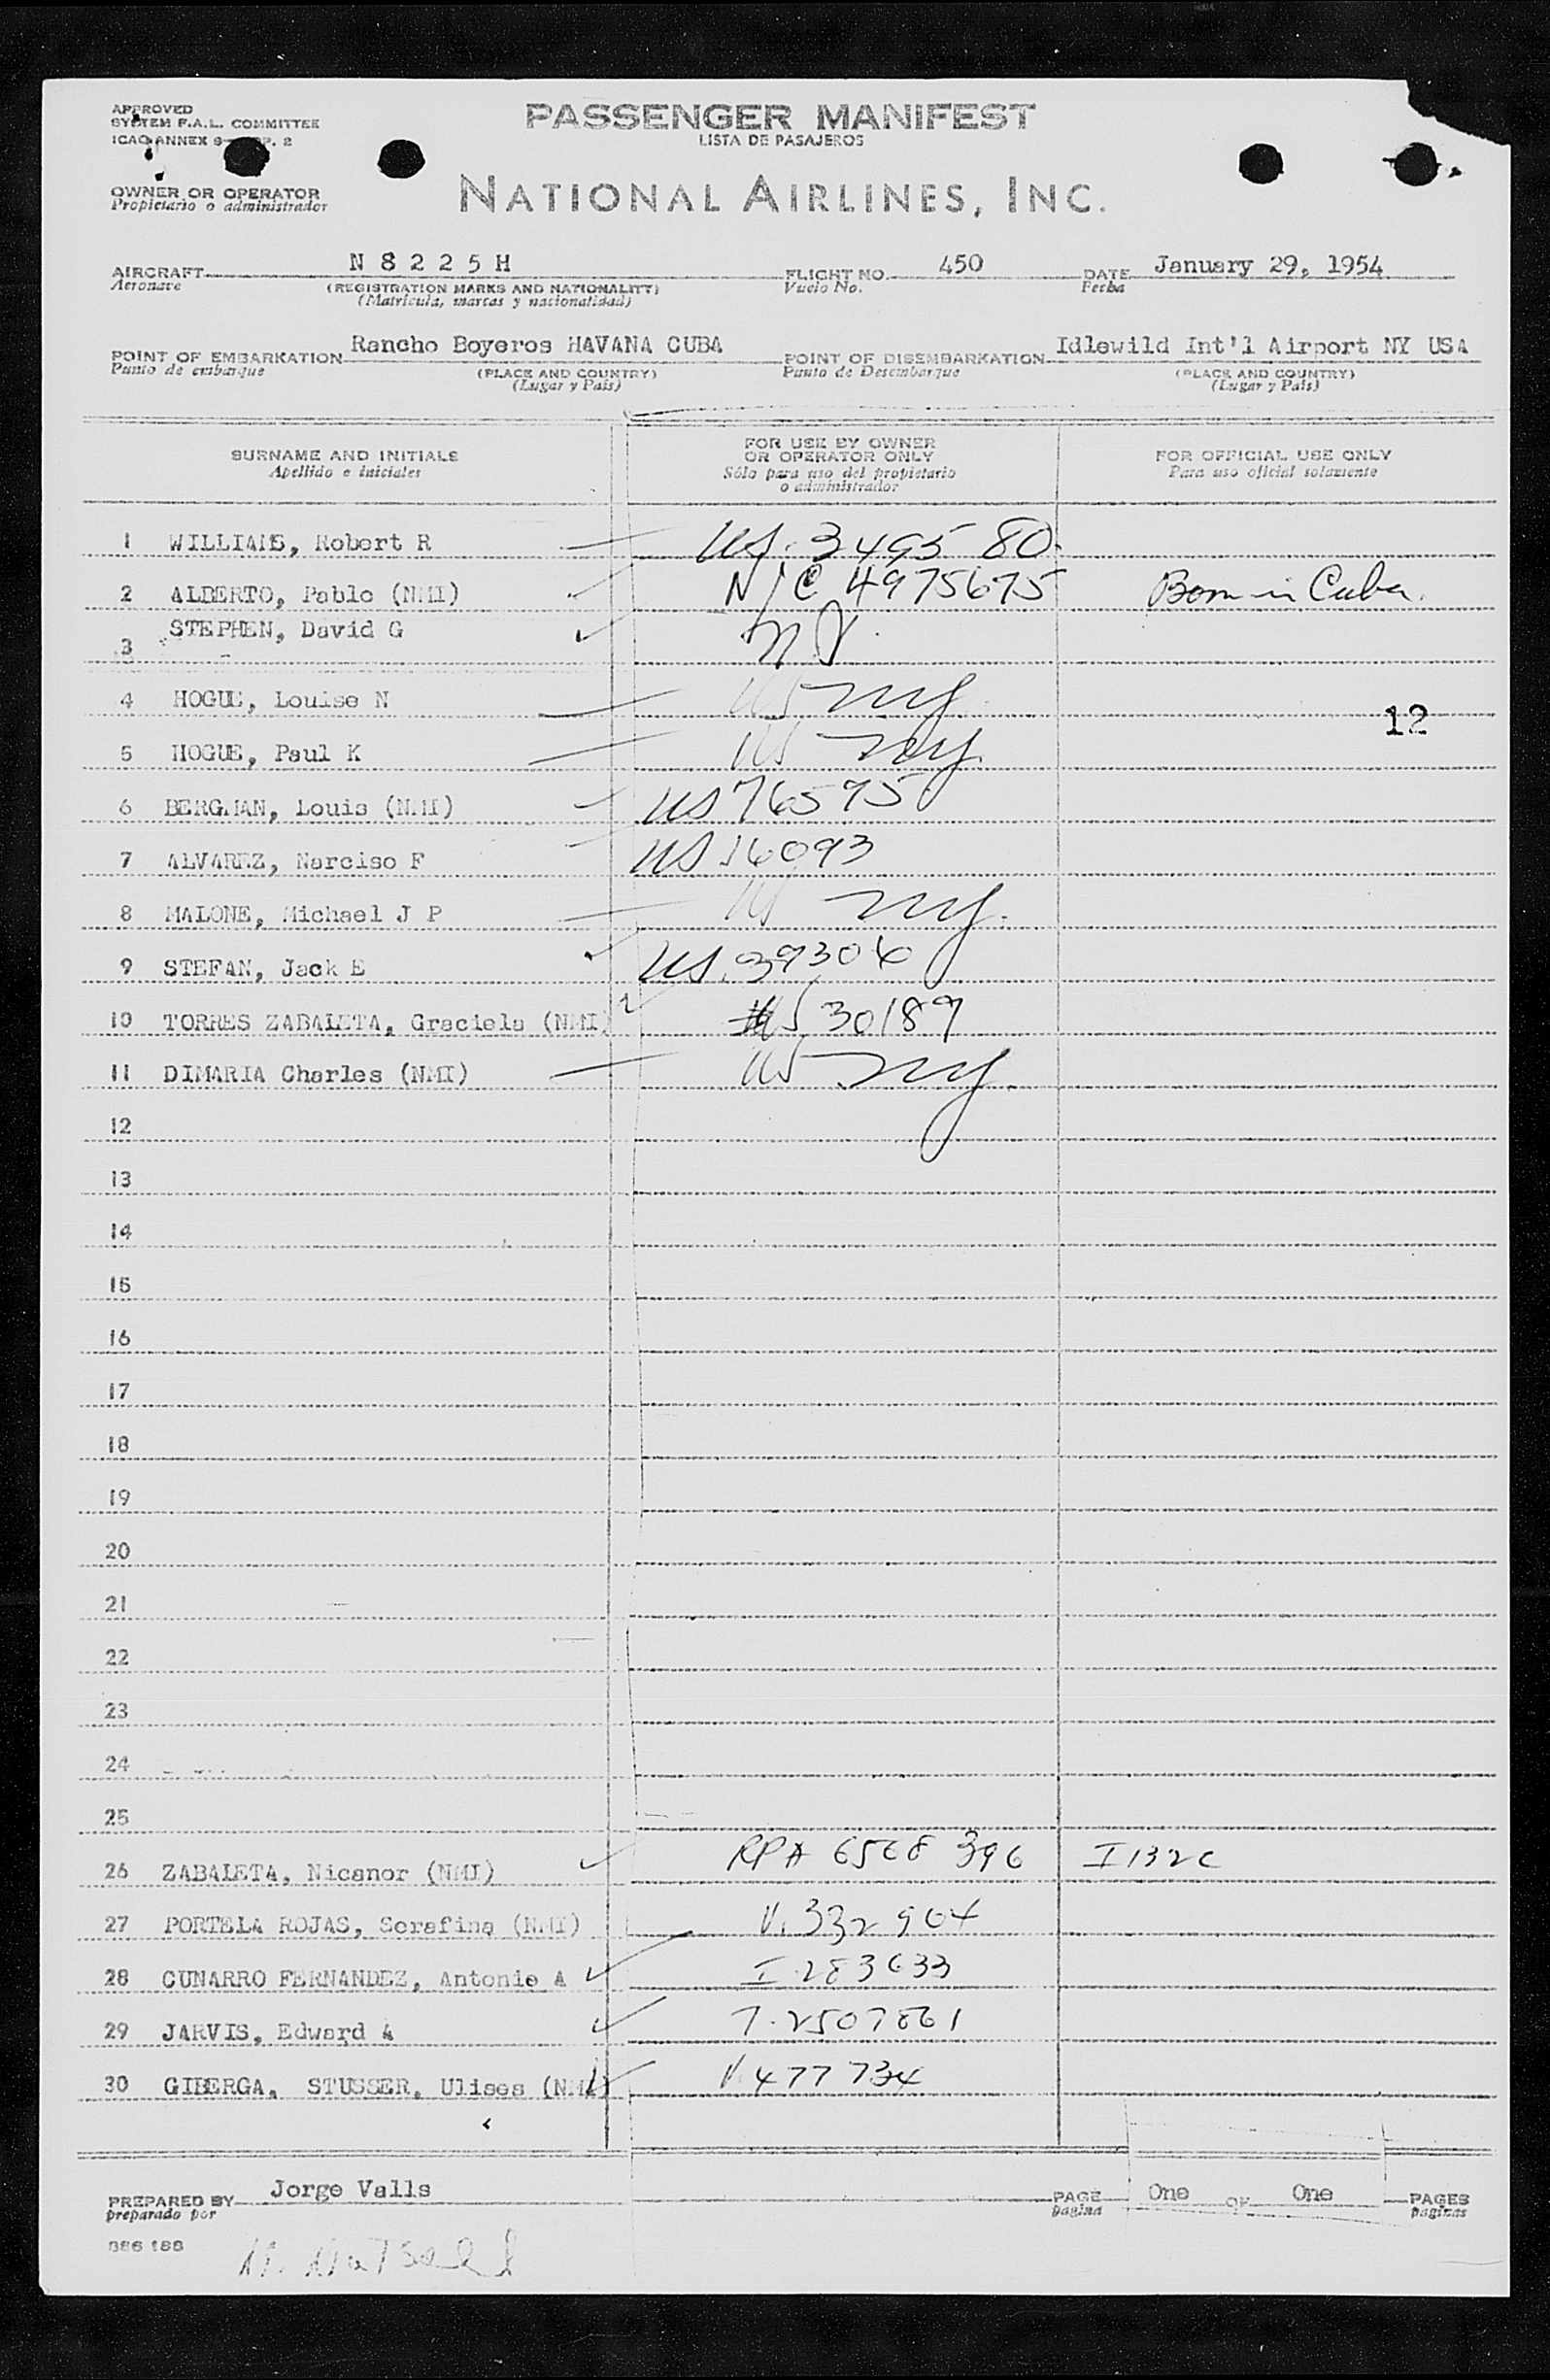 APPROVED
SYSTEM F.A.L. COMMITTEE
ICAO ANNEX 9 P. 2
PASSENGER MANIFEST
LISTA DE PASAJEROS
OWNER OR OPERATOR
Propietario o administrador
NATIONAL AIRLINES, INC.
AIRCRAFT N 8 2 2 5 H FLIGHT NO. 450 DATE January 29, 1954
Aeronave (REGISTRATION MARKS AND NATIONALITY) Vuelo No. Fecha
(Matricula, marcas y nacionalidad)
POINT OF EMBARKATION Rancho Boyeros HAVANA CUBA POINT OF DISEMBARKATION Idlewild Int'l Airport NY USA
Punto de embarque (PLACE AND COUNTRY) Punto de Desembarque (PLACE AND COUNTRY)
(Lugar y País) (Lugar y País)
SURNAME AND INITIALS FOR USE BY OWNER OR OPERATOR ONLY FOR OFFICIAL USE ONLY
Apellido e iniciales Sólo para uso del propietario o administrador Para uso oficial solamente
1 WILLIAMS, Robert R US. 3495 80.
2 ALBERTO, Pablo (NMI) N/C 4975675 Born in Cuba.
3 STEPHEN, David G
4 HOGUE, Louise N US ny
12
5 HOGUE, Paul K US ny
6 BERGMAN, Louis (NMI) US 76595
7 ALVAREZ, Narciso F US 16093
8 MALONE, Michael J P US ny.
9 STEFAN, Jack E US. 39306
10 TORRES ZABALETA, Graciela (NMI) US 30189
11 DIMARIA Charles (NMI) US ny.
12
13
14
15
16
17
18
19
20
21
22
23
24
25
26 ZABALETA, Nicanor (NMI) RPA 6568 396 I 132c
27 PORTELA ROJAS, Serafina (NMI) V. 332 904
28 CUNARRO FERNANDEZ, Antonie A I 283633
29 JARVIS, Edward A 7-2507861
30 GIBERGA, STUSSER, Ulises (NMI) V 477 734
PREPARED BY Jorge Valls PAGE One OF One PAGES
preparado por pagina paginas
886 188